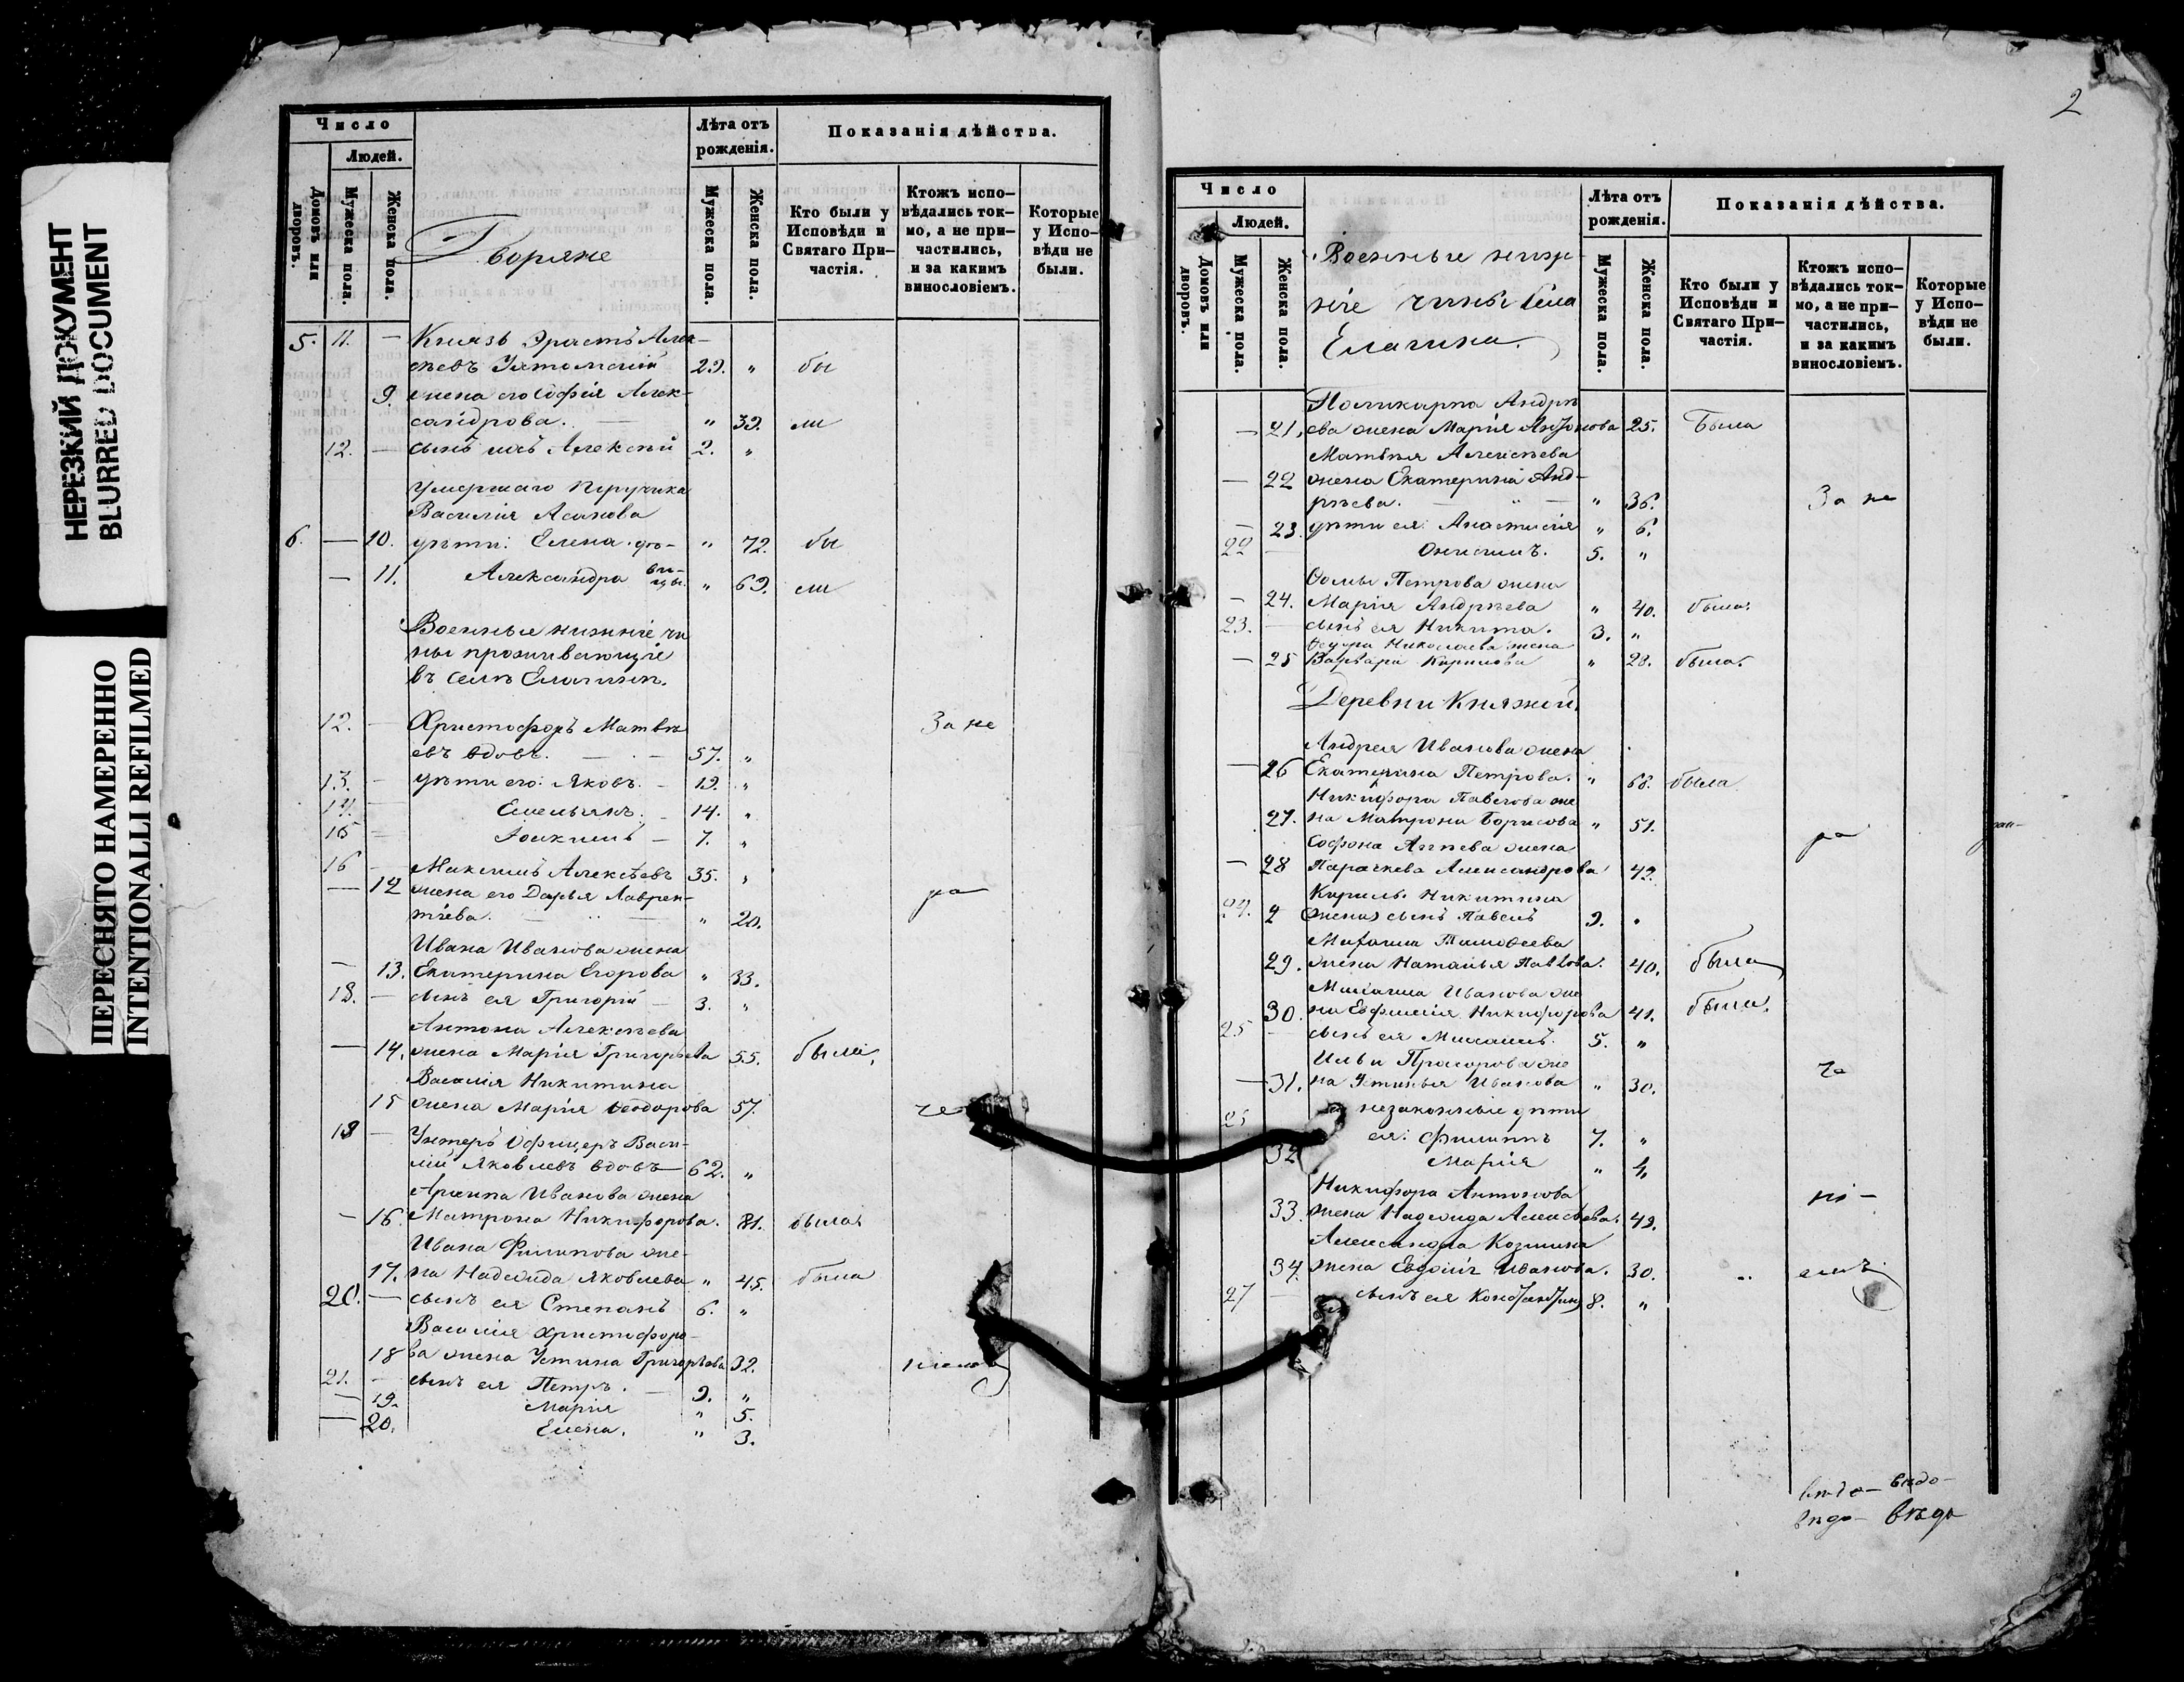 НЕРЕЗКИЙ ДОКУМЕНТ
BLURRED DOCUMENT
ПЕРЕСНЯТО НАМЕРЕННО
INTENTIONALLI REFILMED
Число
Людей.
Домовъ или дворовъ.
Мужеска пола.
Женска пола.
Дворяне
Лѣта отъ рожденія.
Мужеска пола.
Женска пола.
Показанія дѣйства.
Кто были у Исповѣди и Святаго Причастія.
Ктожъ исповѣдались токмо, а не причастились, и за какимъ винословіемъ.
Которые у Исповѣди не были.
5. 11. — Князь Эрастъ Алек-
сѣевъ Ухтомскій 29. " бы
9. жена его Софія Алек-
сандрова. — " 39. ли
12. — сынъ ихъ Алексѣй 2. "
умершаго Поручика
Василія Асанова
6. — 10. дѣти: Елена дѣ- " 72. бы
— 11. Александра ви-
цы. " 69. ли
Военные нижніе чи
ны проживающіе
въ селѣ Елагинѣ.
12. — Христофоръ Матвѣ
евъ вдовъ. — 57. " За не
13. — дѣти его: Яковъ. — 19. "
14. — Емельянъ. — 14. "
15 — Іоакимъ — 7. "
16 — Максимъ Алексѣевъ 35. "
— 12 жена его Дарья Лаврен-
тіева. — " 20. ра
Ивана Иванова жена
— 13. Екатерина Егорова " 33.
18. — сынъ ея Григорій — 3. "
Антона Алексѣева
— 14. жена Марія Григорьева 55. была
Василія Никитина
15 жена Марія Ѳеодорова 57. че
18 — Унтеръ Офицеръ Васи-
лій Яковлевъ вдовъ — 62. "
Архипа Иванова жена
— 16. Матрона Никифорова. 81. была
Ивана Филипова же-
17. на Надежда Яковлева " 45. была
20. — сынъ ея Степанъ 6. "
Василія Христофоро-
18 ва жена Устина Григорьева 32.
21. — сынъ ея Петръ. — 9. "
— 19. Марія " 5.
— 20. Елена. " 3.
2
Число
Людей.
Домовъ или дворовъ.
Мужеска пола.
Женска пола.
Военные ниж-
ніе чины села
Елагина.
Лѣта отъ рожденія.
Мужеска пола.
Женска пола.
Показанія дѣйства.
Кто были у Исповѣди и Святаго Причастія.
Ктожъ исповѣдались токмо, а не причастились, и за какимъ винословіемъ.
Которые у Исповѣди не были.
Поликарпа Андрѣ
— 21. ева жена Марія Антонова 25. Была
Матвѣя Алексѣева
— 22 жена Екатерина Анд-
рѣева. — " — " 36. За не
— 23. дѣти ея: Анастасія " 6.
22 — Онисимъ. 5. "
Ѳомы Петрова жена
— 24. Марія Андрѣева " 40. была
23. — сынъ ея Никита. 3. "
Ѳедора Николаева жена
— 25 Варвара Кирилова " 28. была.
Деревни Княжой.
Андрея Иванова жена
— 26 Екатерина Петрова. " 68. была
Никифора Павлова же
27. на Матрона Борисова " 51. ра
Софона жена
— 28 Параскева Александрова 42.
Кирилъ Никитина
24. жена) сынъ Павелъ 9.
Тимоѳеева
29. жена Наталья Павлова. 40. была
Михаила Иванова же
30. на Евфимія Никифорова 41. была.
25 — сынъ ея Михаилъ. 5. "
Ильи Прохорова же
— 31. на Устинья Иванова " 30. че
незаконные дѣти
ея: Филиппъ 7. "
32 Марія " 4.
Никифора Антонова
33. жена Надежда Алексѣева. 49. ні-
Александра Козмина
34. жена Евдокія Иванова. 30. " емъ
27 — сынъ ея Константинъ 8. "
вѣдо-
вѣдо- вѣдо